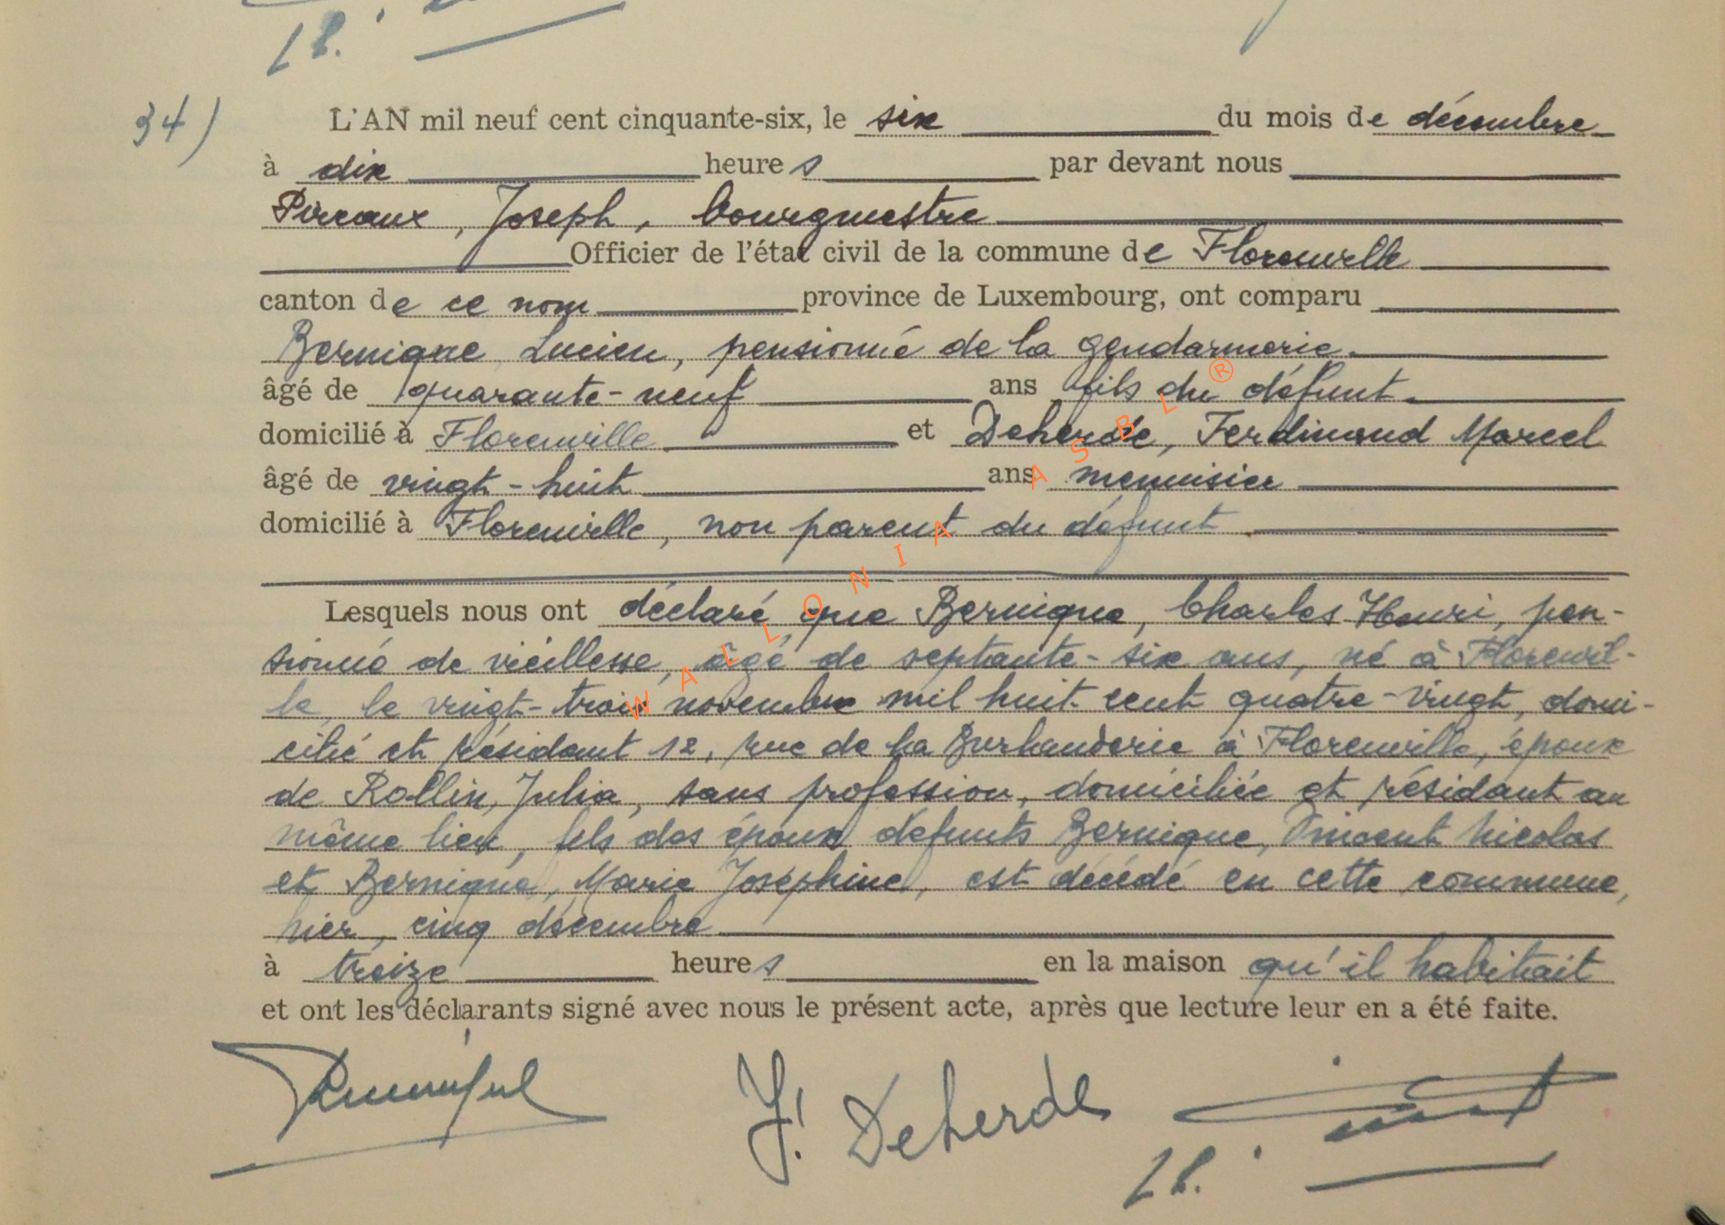 18.
34)
L'AN mil neuf cent cinquante-six, le six du mois de décembre
à dix heures par devant nous
Pireaux, Joseph, bourgmestre
Officier de l'état civil de la commune de Florenville
canton de ce nom province de Luxembourg, ont comparu
Bernique Lucien, pensionné de la gendarmerie.
âgé de quarante-neuf ans fils du défunt.
domicilié à Florenville et Deherde, Ferdinand Marcel
âgé de vingt-huit ans menuisier
domicilié à Florenville, non parent du défunt
Lesquels nous ont déclaré que Bernique, Charles Henri, pen-
sionné de vieillesse, âgé de septante-six ans, né à Florenvil-
le, le vingt-trois novembre mil huit cent quatre-vingt, domi-
cilié et résidant 12, rue de la à Florenville, époux
de Rollin, Julia, sans profession, domiciliée et résidant au
même lieu, fils des époux défunts Bernique, Vincent Nicolas
et Bernique, Marie Joséphine, est décédé en cette commune,
hier, cinq décembre
à treize heures en la maison qu'il habitait
et ont les déclarants signé avec nous le présent acte, après que lecture leur en a été faite.
Deherde
WALLONIA ASBL ®